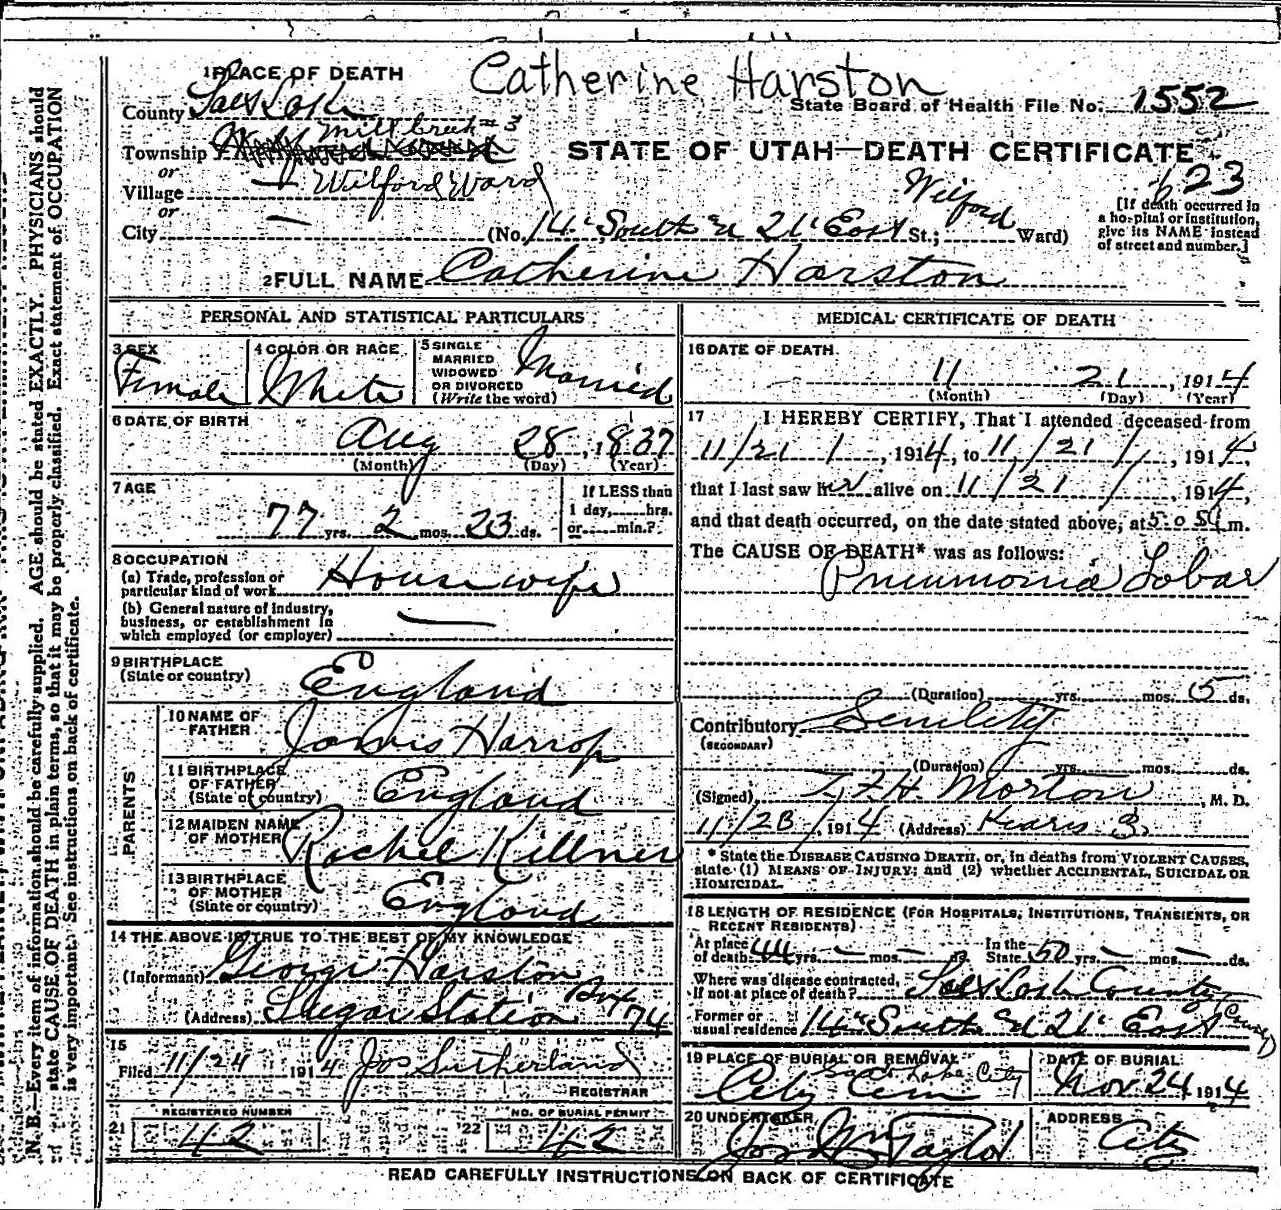 Catherine Harston
1 PLACE OF DEATH
State Board of Health File No. 1552
County Salt Lake
Township Mill Creek #3
or
Village — Wilford Ward
or
City —
STATE OF UTAH—DEATH CERTIFICATE
623
[If death occurred in
a hospital or institution,
give its NAME instead
of street and number.]
(No. 14" South & 21" East St.; Wilford Ward)
2 FULL NAME Catherine Harston
PERSONAL AND STATISTICAL PARTICULARS
3 SEX
Female
4 COLOR OR RACE
White
5 SINGLE
MARRIED
WIDOWED
OR DIVORCED
(Write the word)
Married
6 DATE OF BIRTH
Aug 28, 1837
(Month) (Day) (Year)
7 AGE
77 yrs. 2 mos. 23 ds.
If LESS than
1 day, hrs.
or min.?
8 OCCUPATION
(a) Trade, profession or
particular kind of work Housewife
(b) General nature of industry,
business, or establishment in
which employed (or employer) —
9 BIRTHPLACE
(State or country) England
PARENTS
10 NAME OF
FATHER Harrop
11 BIRTHPLACE
OF FATHER
(State or country) England
12 MAIDEN NAME
OF MOTHER Rachel Killner
13 BIRTHPLACE
OF MOTHER
(State or country) England
14 THE ABOVE IS TRUE TO THE BEST OF MY KNOWLEDGE
(Informant) George Harston
(Address) Sugar Station Box 74
15
Filed 11/24 1914 Jos Sutherland
REGISTRAR
REGISTERED NUMBER
21 42
NO. OF BURIAL PERMIT
22 42
MEDICAL CERTIFICATE OF DEATH
16 DATE OF DEATH
11 21, 1914
(Month) (Day) (Year)
17 I HEREBY CERTIFY, That I attended deceased from
11/21/, 1914, to 11/21/, 1914,
that I last saw her alive on 11/21, 1914,
and that death occurred, on the date stated above, at m.
The CAUSE OF DEATH* was as follows:
Pneumonia Lobar
(Duration) yrs. mos. 5 ds.
Contributory Senility
(SECONDARY)
(Duration) yrs. mos. ds.
(Signed) Morton, M. D.
11/23, 1914 (Address)
* State the DISEASE CAUSING DEATH, or, in deaths from VIOLENT CAUSES,
state (1) MEANS OF INJURY; and (2) whether ACCIDENTAL, SUICIDAL OR
HOMICIDAL.
18 LENGTH OF RESIDENCE (FOR HOSPITALS, INSTITUTIONS, TRANSIENTS, OR
RECENT RESIDENTS)
At place
of death 44 yrs. — mos. — ds.
In the
State 50 yrs. — mos. — ds.
Where was disease contracted,
If not at place of death? Salt Lake County
Former or
usual residence 14" South & 21" East County
19 PLACE OF BURIAL OR REMOVAL
City Cem Salt Lake City
DATE OF BURIAL
Nov. 24, 1914
20 UNDERTAKER
Jos Wm Taylor
ADDRESS
City
READ CAREFULLY INSTRUCTIONS ON BACK OF CERTIFICATE
N. B.—Every item of information should be carefully supplied. AGE should be stated EXACTLY. PHYSICIANS should
state CAUSE OF DEATH in plain terms, so that it may be properly classified. Exact statement of OCCUPATION
is very important. See instructions on back of certificate.